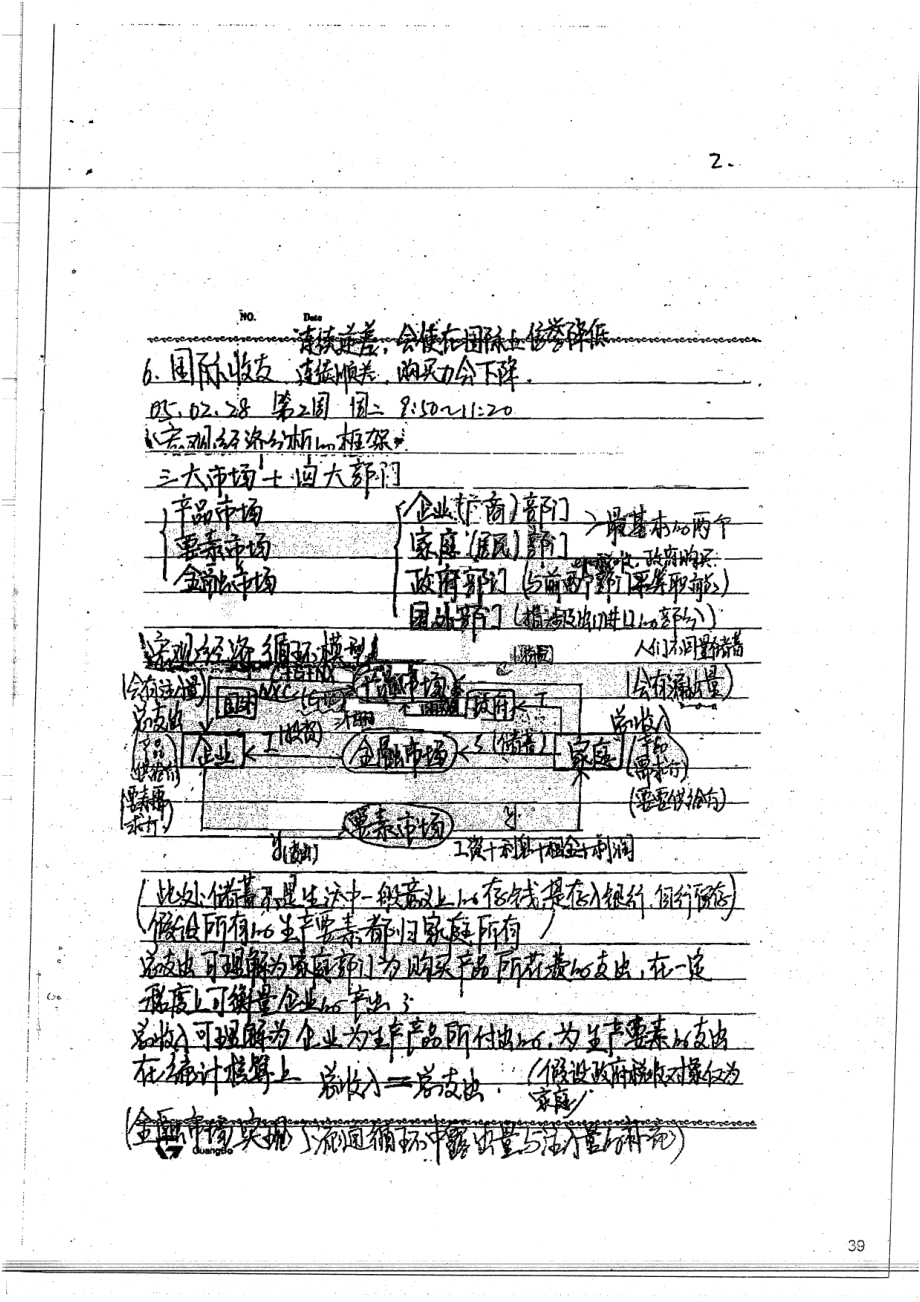 2.
NO. Date
连续逆差，会使在国际上信誉降低
6. 国际收支 连续顺差，购买力会下降.
05.02.28 第2周 周二 9:50~11:20
《宏观经济分析的框架》
三大市场十四大部门
产品市场 企业(厂商)部门
要素市场 家庭(居民)部门 >最基本的两个
税收，政府购买
金融市场 政府部门 (与前两个部门
国外部门 (指涉及出口进口的部分)
宏观经济循环模型
人们不同量储蓄
C+G+NX
产品市场
(会有注入量) 国外 政府 ←T (会有漏出量)
总支出 总收入
企业 ←I(投资) 金融市场 ←S(储蓄) 家庭
(产品供给方) (产品需求方)
(要素需求方) (要素供给方)
要素市场
y(支出) y 工资+利息+租金+利润
(此处储蓄不是生活中一般意义上的存钱,是存入银行,
假设所有的生产要素都归家庭所有)
总支出可理解为家庭部门为购买产品所花费的支出，在一定
程度上可衡量企业的产出
总收入可理解为企业为生产产品所付出的，为生产要素的支出
在统计核算上 总收入＝总支出. (假设政府税收对象仅为
家庭)
(金融市场实现了流回循环中露出量与注入量的补充)
GuangBo
39